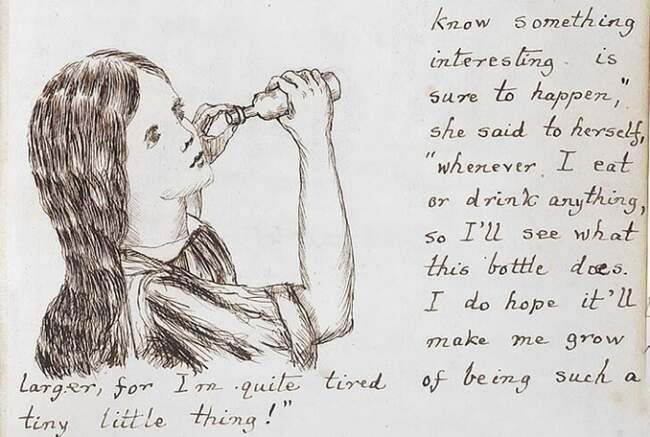 know something
interesting is
sure to happen,"
she said to herself,
"whenever I eat
or drink anything,
so I'll see what
this bottle does.
I do hope it'll
make me grow
larger, for I'm quite tired of being such a
tiny little thing!"